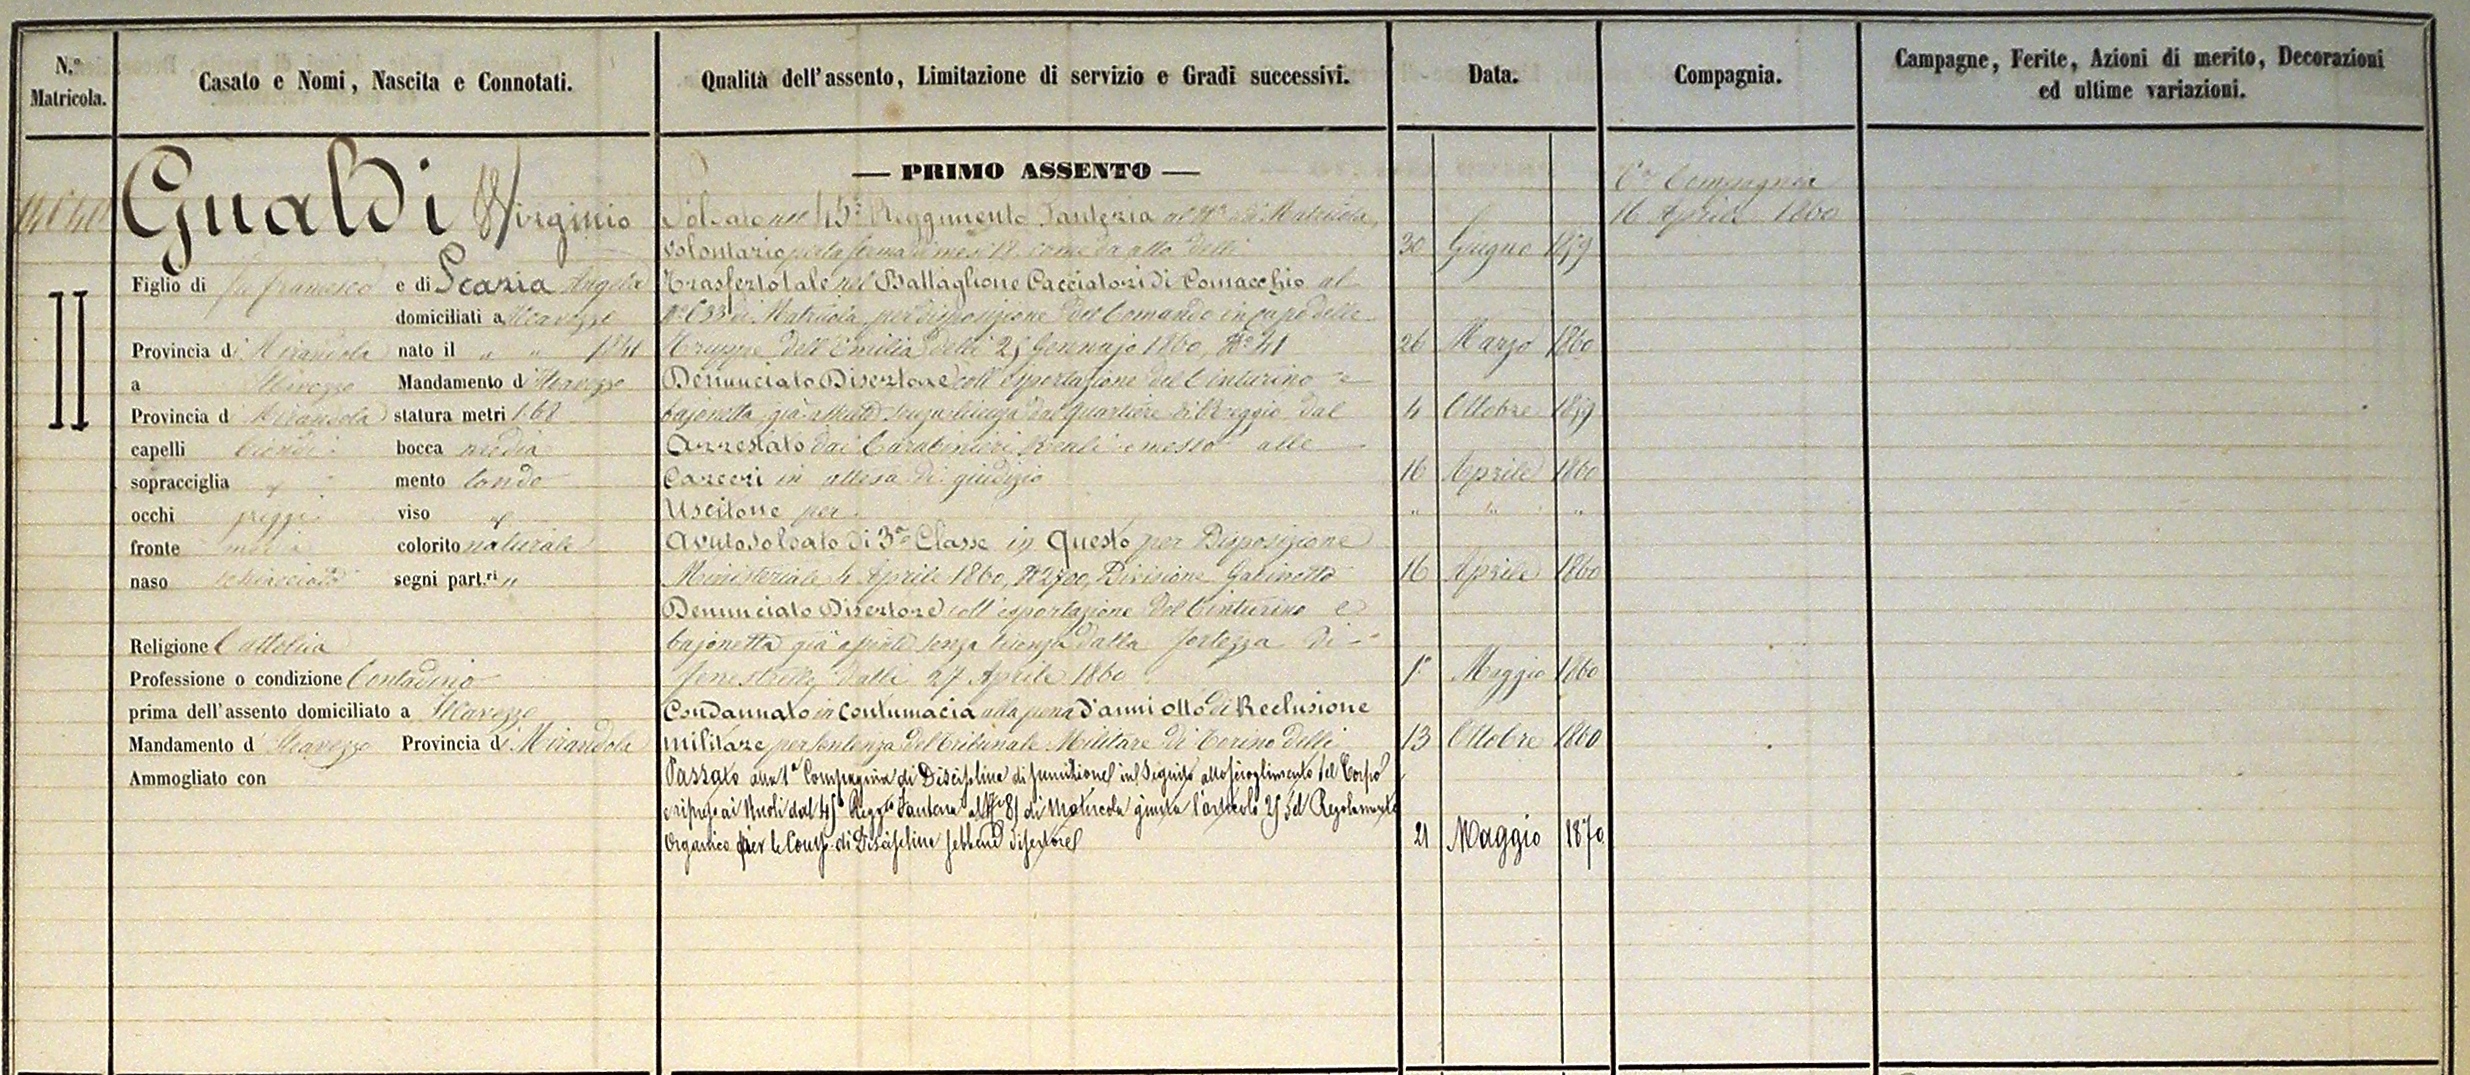 N.º Matricola.
Casato e Nomi, Nascita e Connotati.
Qualità dell'assento, Limitazione di servizio e Gradi successivi.
Data.
Compagnia.
Campagne, Ferite, Azioni di merito, Decorazioni
ed ultime variazioni.
Gualdi Virginio
Figlio di fu Francesco e di Scazia Angela
domiciliati a
Provincia di Mirandola nato il " " 1841
a Mandamento d
Provincia di Mirandola statura metri 1.68
capelli biondi bocca media
sopracciglia mento tondo
occhi griggi viso
fronte media colorito naturale
naso schiacciato segni part.ri "
Religione Cattolica
Professione o condizione Contadino
prima dell'assento domiciliato a
Mandamento d Provincia di Mirandola
Ammogliato con
— PRIMO ASSENTO —
Soldato nel 45º Reggimento Fanteria al Nº di Matricola
volontario per la ferma di mesi 18, come da atto delli 30 Giugno 1859
Trasferto tale nel Battaglione Cacciatori di Comacchio al
Nº 633 di Matricola per disposizione del Comando in capo delle
Truppe dell'Emilia delli 25 Gennajo 1860, Nº 41 26 Marzo 1860
Denunciato Disertore coll'esportazione del Cinturino e
bajonetta già a piedi senza licenza dal quartiere di Reggio dal 4 Ottobre 1859
Arrestato dai Carabinieri Reali e messo alle
Carceri in attesa di giudizio 16 Aprile 1860
Uscitone per " " "
Avuto soldato di 3ª Classe in Questo per Disposizione
Ministeriale 4 Aprile 1860, Nº 2700, Divisione Gabinetto 16 Aprile 1860
Denunciato Disertore coll'esportazione del Cinturino e
bajonetta già a piedi senza licenza dalla fortezza di
Fenestrelle dalli 27 Aprile 1860 1º Maggio 1860
Condannato in Contumacia alla pena d'anni otto di Reclusione
militare per sentenza del Tribunale Militare di Torino delli 13 Ottobre 1860
Passato alla 1ª Compagnia di Disciplina di punizione in seguito allo scioglimento del Corpo
e ripreso ai Ruoli dal 45º Regg.to Fanteria al Nº 81 di Matricola giusta l'articolo 25 del Regolamento
Organico per le Comp. di Disciplina sebbene disertore 21 Maggio 1870
Compagnia
16 Aprile 1860
II